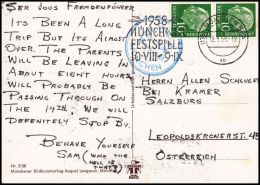 SER VOUS FREMDENFÜHRER
IT'S BEEN A LONG
TRIP BUT IT'S ALMOST
OVER. THE PARENTS
WILL BE LEAVING IN
ABOUT EIGHT HOURS
WILL PROBABLY BE
PASSING THROUGH ON
THE 14TH. WE WILL
DEFENITELY STOP BY
BEHAVE YOURSELF
SAM (WHO THE
HELL IS THAT?)
Nr. 3108
Münchener Bildkunstverlag August Lengauer, München
1958
MÜNCHNER
FESTSPIELE
10·VIII-9·IX
MÜNCHEN
DEUTSCHE BUNDESPOST
DEUTSCHE BUNDESPOST
HERREN ALLEN SCHUL
BEI KRAMER
SALZBURG
LEOPOLDSKRONERST
ÖSTERREICH